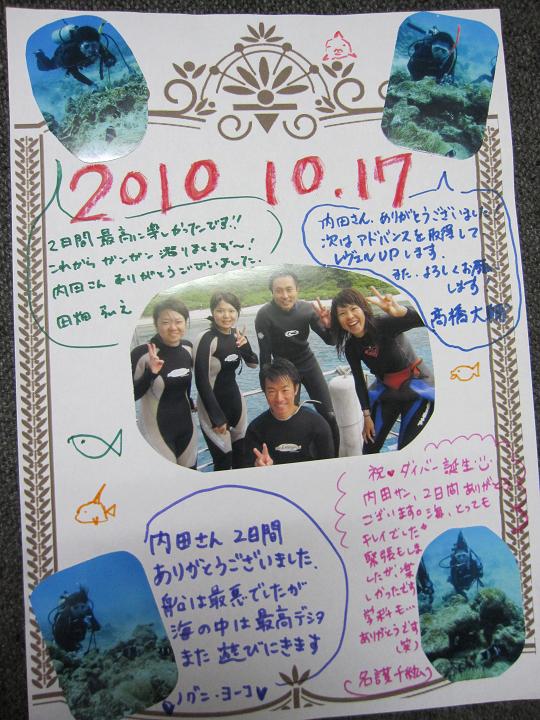 2010 10.17
2日間 最高に楽しかったです!!
これから ガンガン 潜りまくるぞ〜!
内田さん ありがとうございました.
田畑
内田さん、ありがとうございました
次は アドバンスを 取得して
レヴェルUP します.
また、よろしくお願い
します
高橋大
祝♥ダイバー 誕生
内田サン、2日間 ありがとう
ございます。海、とっても
キレイでした
緊張もしま
したが、楽
しかったです
学科も…
ありがとうです
(笑)
(名護千紘)
内田さん 2日間
ありがとうございました.
船は最悪でしたが
海の中は最高デシタ
また 遊びにきます
ノグニ・ヨーコ